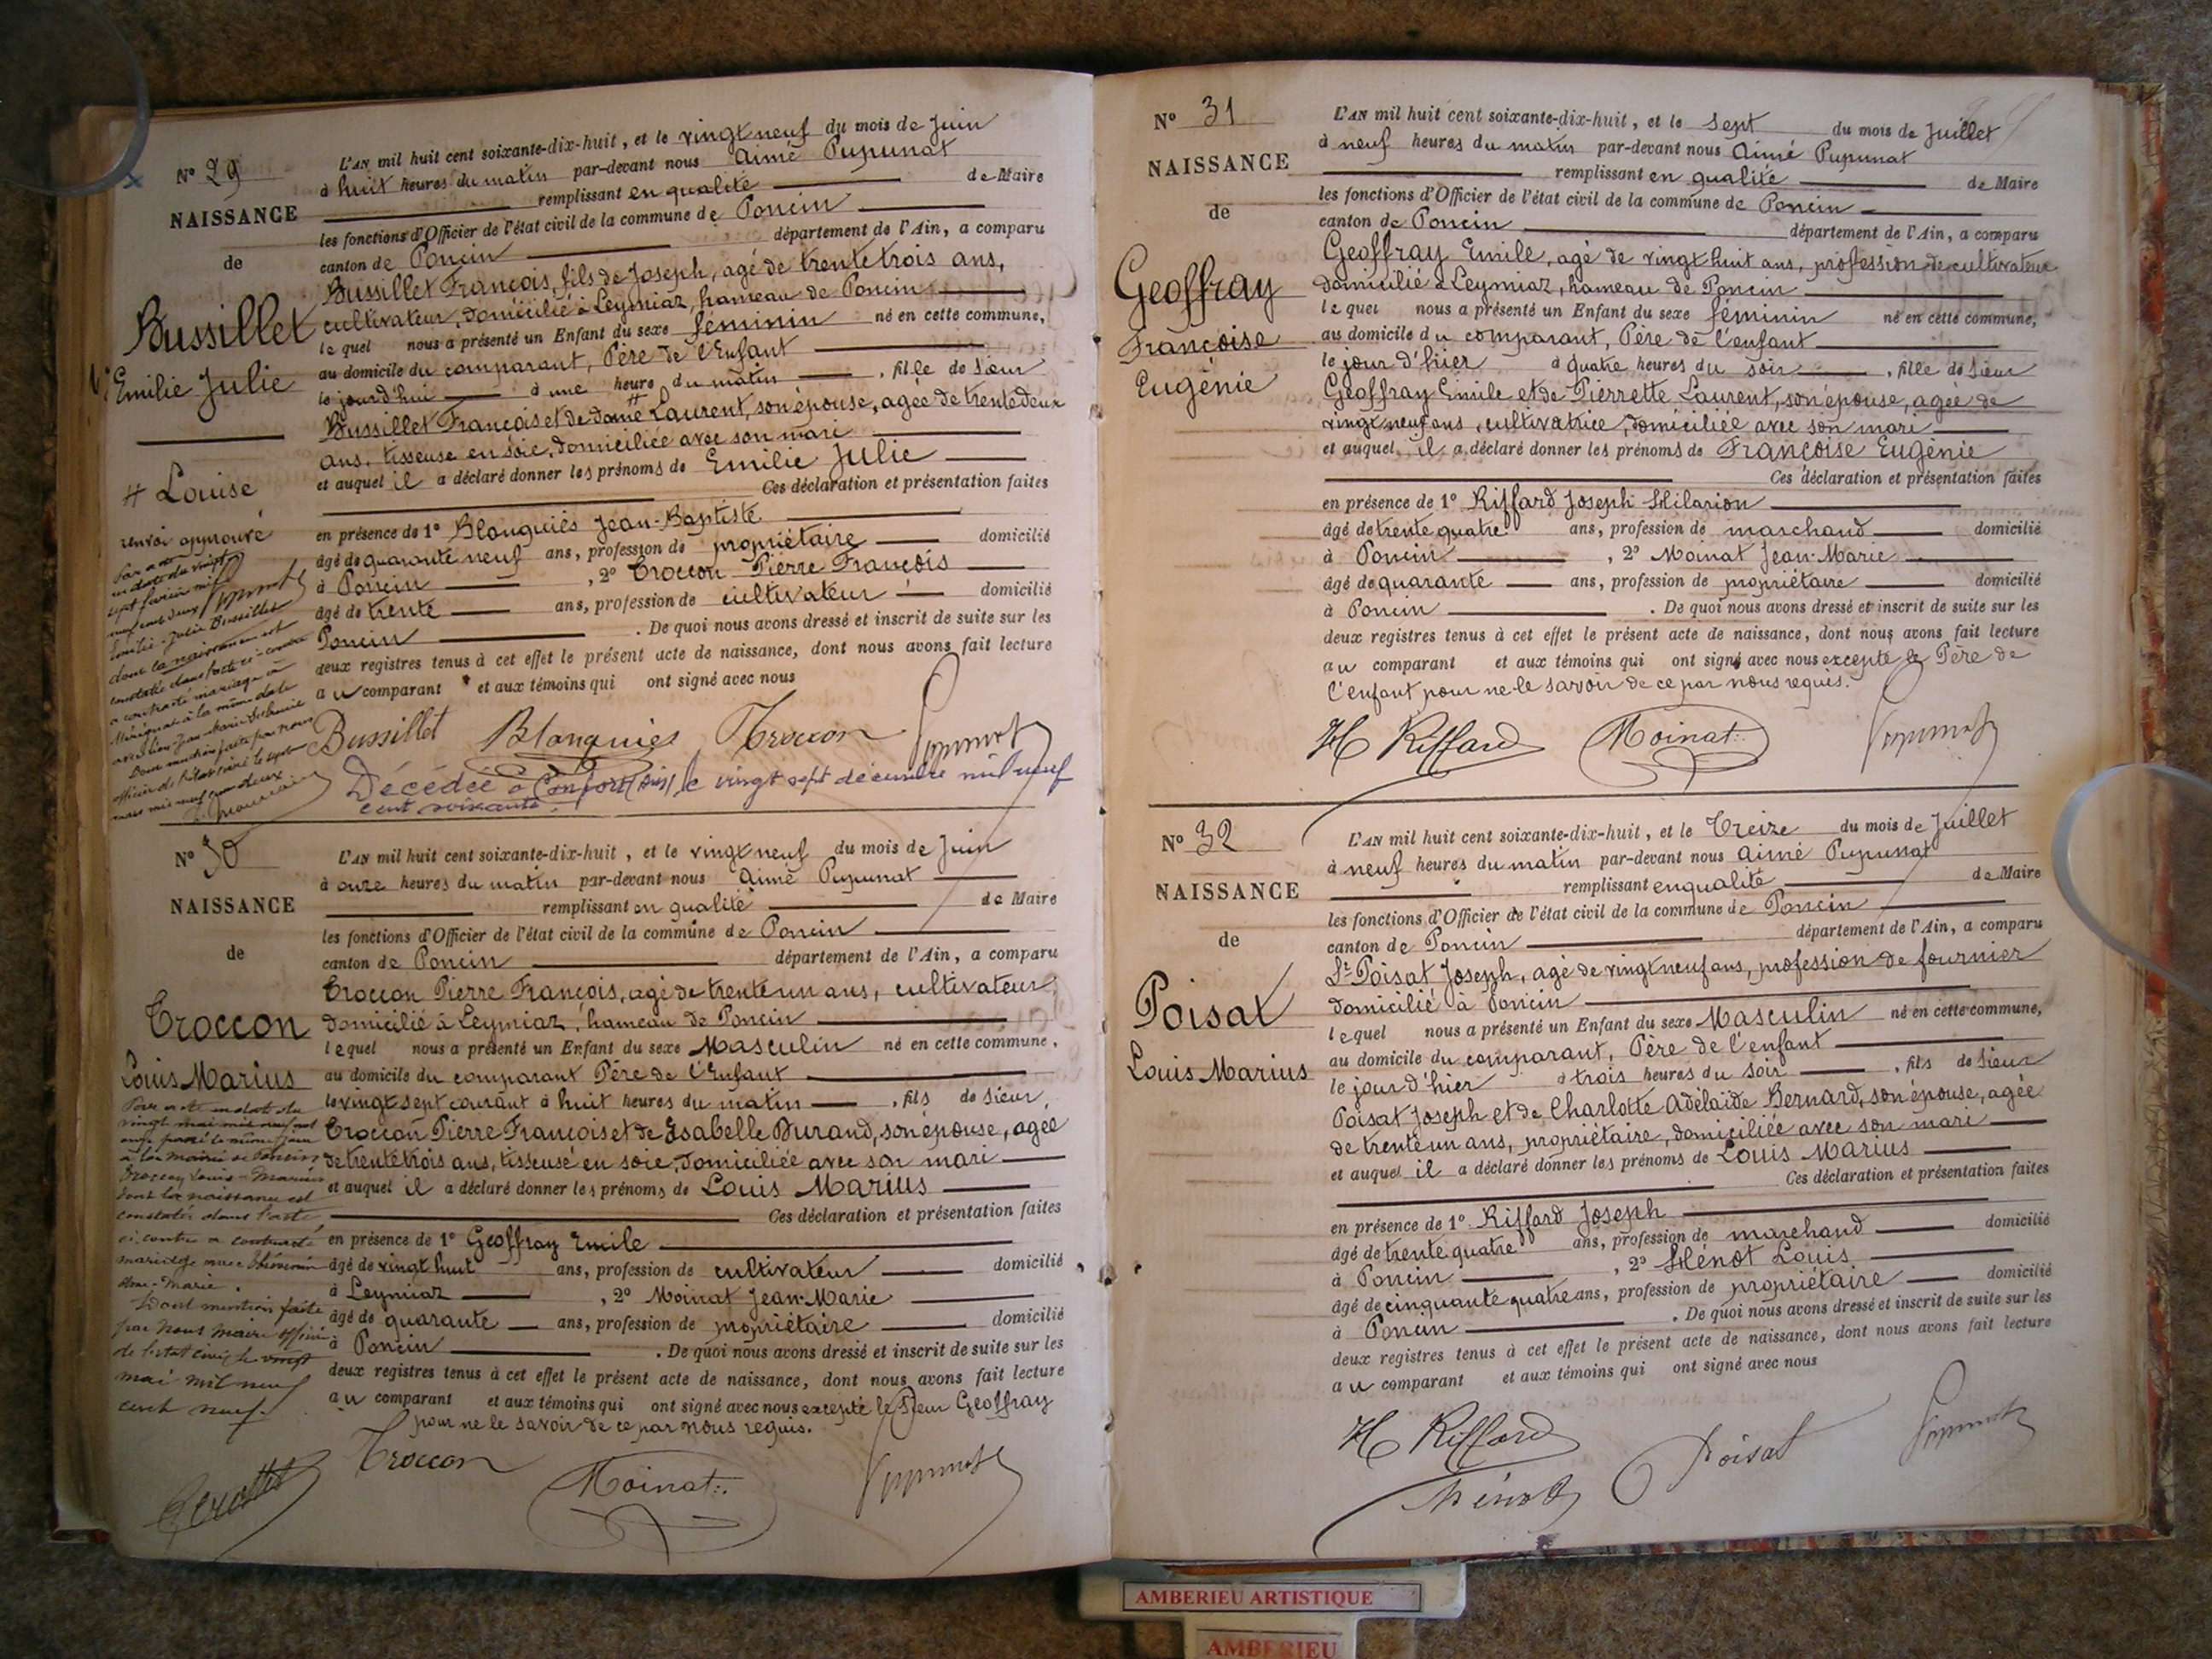 N° 29
NAISSANCE
de
Bussillet
Emilie Julie
# Louise
renvoi approuvé
Par acte
en date du vingt
sept février mil
neuf cent deux
Emilie-Julie Bussillet
dont la naissance est
constatée dans l'acte ci-contre
a contracté mariage à
à la même date
avec
Dont mention faite par nous
officier de l'état civil le sept
mars mil neuf cent deux
L'AN mil huit cent soixante-dix-huit, et le vingt neuf du mois de Juin
à huit heures du matin par-devant nous Aimé Pupunat
remplissant en qualité de Maire
les fonctions d'Officier de l'état civil de la commune de Poncin
canton de Poncin département de l'Ain, a comparu
Bussillet François, fils de Joseph, agé de trente trois ans,
cultivateur, domicilié à Leymiaz, hameau de Poncin
lequel nous a présenté un Enfant du sexe féminin né en cette commune,
au domicile du comparant, Père de l'Enfant
le jourd'hui à une heure du matin, fille de Sieur
Bussillet François et de dame # Laurent, son épouse, agée de trente deux
ans, tisseuse en soie, domiciliée avec son mari
et auquel il a déclaré donner les prénoms de Emilie Julie
Ces déclaration et présentation faites
en présence de 1° Blonguiés Jean-Baptiste
âgé de quarante neuf ans, profession de propriétaire domicilié
à Poncin, 2° Troccon Pierre François
âgé de trente ans, profession de cultivateur domicilié
Poncin. De quoi nous avons dressé et inscrit de suite sur les
deux registres tenus à cet effet le présent acte de naissance, dont nous avons fait lecture
au comparant et aux témoins qui ont signé avec nous
Bussillet Blonguiés Troccon Pupunat
Décédée à Confort (Ain) le vingt sept décembre mil neuf
cent soixante.
N° 30
NAISSANCE
de
Troccon
Louis Marius
Par acte en date du
vingt mai mil neuf cent
neuf passé le même jour
à la mairie de Poncin
Troccon Louis-Marius
dont la naissance est
constatée dans l'acte
ci-contre a contracté
mariage avec Thévenin
Marie.
Dont mention faite
par nous maire officier
de l'état civil le vingt
mai mil neuf
cent neuf.
L'AN mil huit cent soixante-dix-huit, et le vingt neuf du mois de Juin
à onze heures du matin par-devant nous Aimé Pupunat
remplissant en qualité de Maire
les fonctions d'Officier de l'état civil de la commune de Poncin
canton de Poncin département de l'Ain, a comparu
Troccon Pierre François, agé de trente un ans, cultivateur,
domicilié à Leymiaz, hameau de Poncin
lequel nous a présenté un Enfant du sexe Masculin né en cette commune,
au domicile du comparant Père de l'Enfant
le vingt sept courant à huit heures du matin, fils de Sieur
Troccon Pierre François et de Isabelle Durand, son épouse, agée
de trente trois ans, tisseuse en soie, domiciliée avec son mari
et auquel il a déclaré donner les prénoms de Louis Marius
Ces déclaration et présentation faites
en présence de 1° Geoffray Emile
âgé de vingt huit ans, profession de cultivateur domicilié
à Leymiaz, 2° Moinat Jean-Marie
âgé de quarante ans, profession de propriétaire domicilié
à Poncin. De quoi nous avons dressé et inscrit de suite sur les
deux registres tenus à cet effet le présent acte de naissance, dont nous avons fait lecture
au comparant et aux témoins qui ont signé avec nous excepté le Sieur Geoffray
pour ne le savoir de ce par nous requis.
Troccon Moinat Pupunat
N° 31
NAISSANCE
de
Geoffray
Françoise
Eugénie
L'AN mil huit cent soixante-dix-huit, et le Sept du mois de Juillet
à neuf heures du matin par-devant nous Aimé Pupunat
remplissant en qualité de Maire
les fonctions d'Officier de l'état civil de la commune de Poncin
canton de Poncin département de l'Ain, a comparu
Geoffray Emile, agé de vingt huit ans, profession de cultivateur
domicilié à Leymiaz, hameau de Poncin
lequel nous a présenté un Enfant du sexe féminin né en cette commune,
au domicile du comparant, Père de l'enfant
le jour d'hier à quatre heures du soir, fille de Sieur
Geoffray Emile et de Pierrette Laurent, son épouse, agée de
vingt neuf ans, cultivatrice, domiciliée avec son mari
et auquel il a déclaré donner les prénoms de Françoise Eugénie
Ces déclaration et présentation faites
en présence de 1° Riffard Joseph Hilarion
âgé de trente quatre ans, profession de marchand domicilié
à Poncin, 2° Moinat Jean-Marie
âgé de quarante ans, profession de propriétaire domicilié
à Poncin. De quoi nous avons dressé et inscrit de suite sur les
deux registres tenus à cet effet le présent acte de naissance, dont nous avons fait lecture
au comparant et aux témoins qui ont signé avec nous excepté le Père de
l'enfant pour ne le savoir de ce par nous requis.
H Riffard Moinat Pupunat
N° 32
NAISSANCE
de
Poisat
Louis Marius
L'AN mil huit cent soixante-dix-huit, et le Treize du mois de Juillet
à neuf heures du matin par-devant nous Aimé Pupunat
remplissant en qualité de Maire
les fonctions d'Officier de l'état civil de la commune de Poncin
canton de Poncin département de l'Ain, a comparu
Sr Poisat Joseph, agé de vingt neuf ans, profession de fournier
domicilié à Poncin
lequel nous a présenté un Enfant du sexe Masculin né en cette commune,
au domicile du comparant, Père de l'enfant
le jour d'hier à trois heures du soir, fils de Sieur
Poisat Joseph et de Charlotte Adélaïde Bernard, son épouse, agée
de trente un ans, propriétaire, domiciliée avec son mari
et auquel il a déclaré donner les prénoms de Louis Marius
Ces déclaration et présentation faites
en présence de 1° Riffard Joseph
âgé de trente quatre ans, profession de marchand domicilié
à Poncin, 2° Hénot Louis
âgé de cinquante quatre ans, profession de propriétaire domicilié
à Poncin. De quoi nous avons dressé et inscrit de suite sur les
deux registres tenus à cet effet le présent acte de naissance, dont nous avons fait lecture
au comparant et aux témoins qui ont signé avec nous
H Riffard Poisat Pupunat
Hénot
AMBERIEU ARTISTIQUE
AMBERIEU